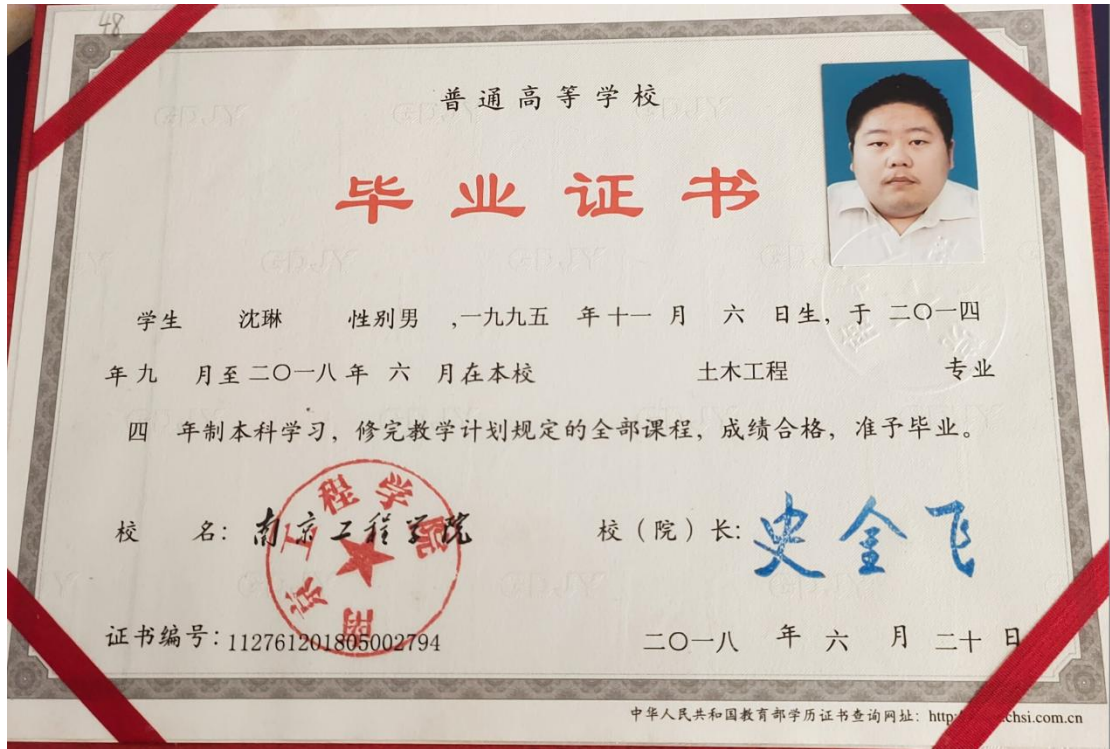 48
普通高等学校
毕业证书
学生 沈琳 性别男 ,一九九五 年十一 月 六 日生，于 二〇一四
年九 月至二〇一八年 六 月在本校 土木工程 专业
四 年制本科学习，修完教学计划规定的全部课程，成绩合格，准予毕业。
校 名：南京工程学院 校（院）长:史金飞
南京工程学院
证书编号：112761201805002794 二〇一八 年 六 月 二十 日
中华人民共和国教育部学历证书查询网址：http chsi.com.cn
GDJY